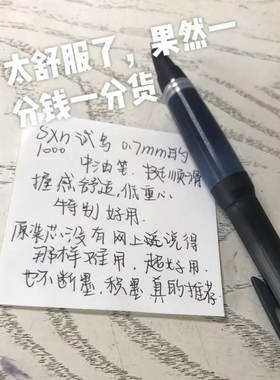 太舒服了，果然一
分钱一分货
SXn 试写 0.7mm的
1000
中油笔. 挺顺滑
握感舒适, 低重心
特制 好用.
原装芯.没有网上说说得
那样难用, 超好用.
也不断墨. 积墨 真的推荐.